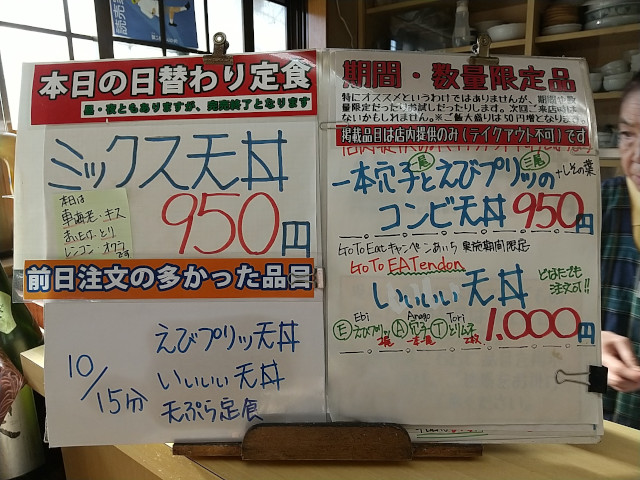 本日の日替わり定食
品・衣ともありますが、売切終了となります
ミックス天丼
本日は
車海老・キス
まいたけ・とり
レンコン オクラ
です
950円
前日注文の多かった品目
10/15分
えびプリッ天丼
いいいい天丼
天ぷら定食
期間・数量限定品
特にオススメというわけではありませんが、期間や数
量限定だったりお試しだったりします。次回ご来店時は
ないかもしれません。※ご飯大盛りは50円増となります
掲載品目は店内提供のみ(テイクアウト不可)です
一本穴子とえびプリッの
尾
三尾
+しその葉
コンビ天丼 950円
Go To Eatキャンペーンあいち 実施期間限定
Go To EATendon
いいいい天丼
どなたでも
注文OK!!
Ebi Anago Tori
Ⓔえびプリッ Ⓐ穴子 Ⓣとりムネ
2尾 一本 2枚
1,000円